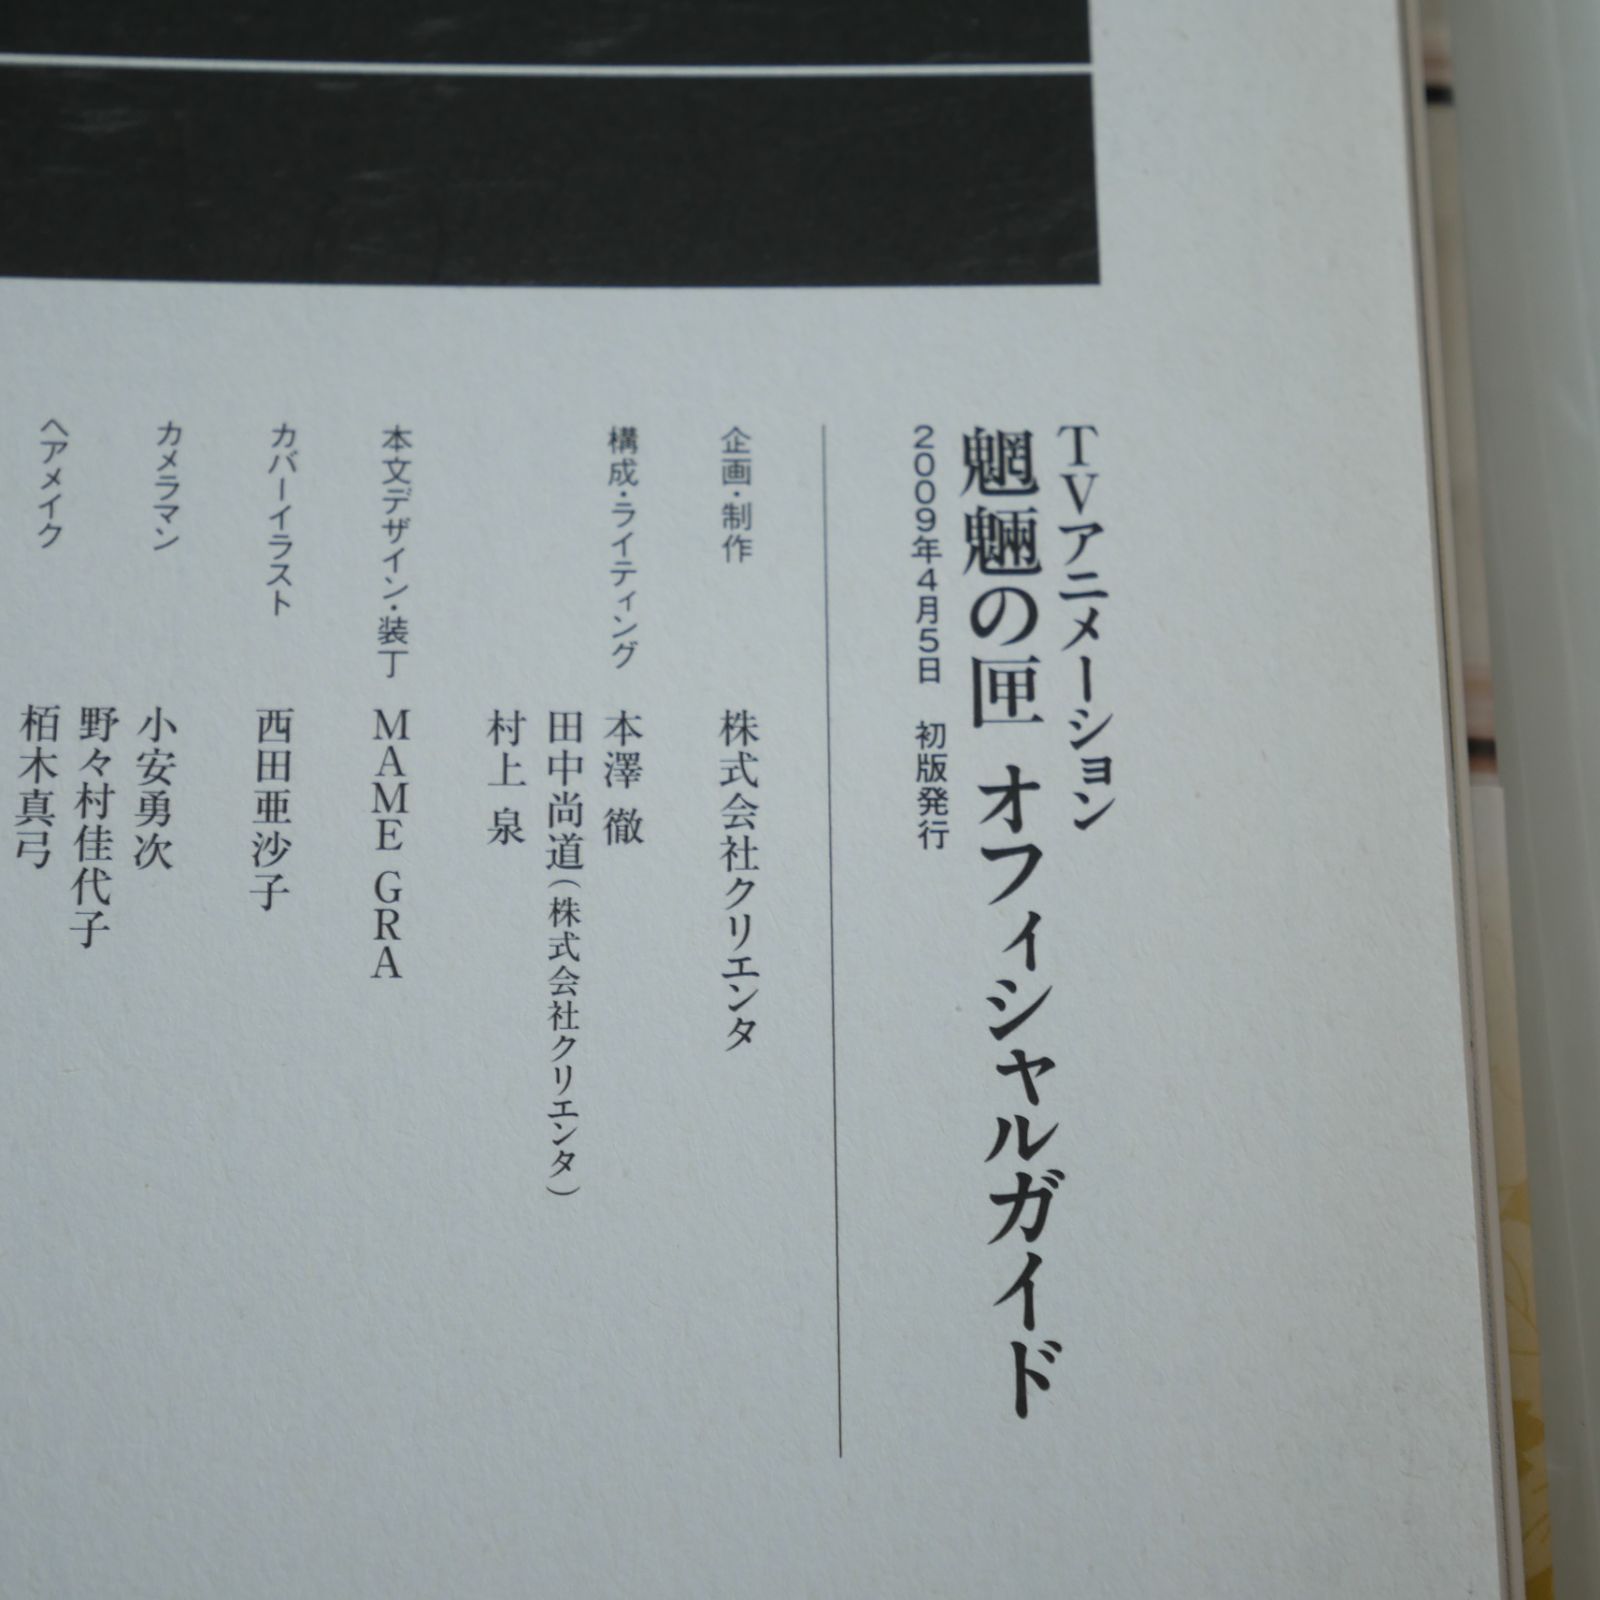 TVアニメーション
魍魎の匣 オフィシャルガイド
2009年4月5日　初版発行
企画・制作　株式会社クリエンタ
構成・ライティング　本澤 徹
田中尚道（株式会社クリエンタ）
村上 泉
本文デザイン・装丁　MAME GRA
カバーイラスト　西田亜沙子
カメラマン　小安勇次
野々村佳代子
ヘアメイク　栢木真弓